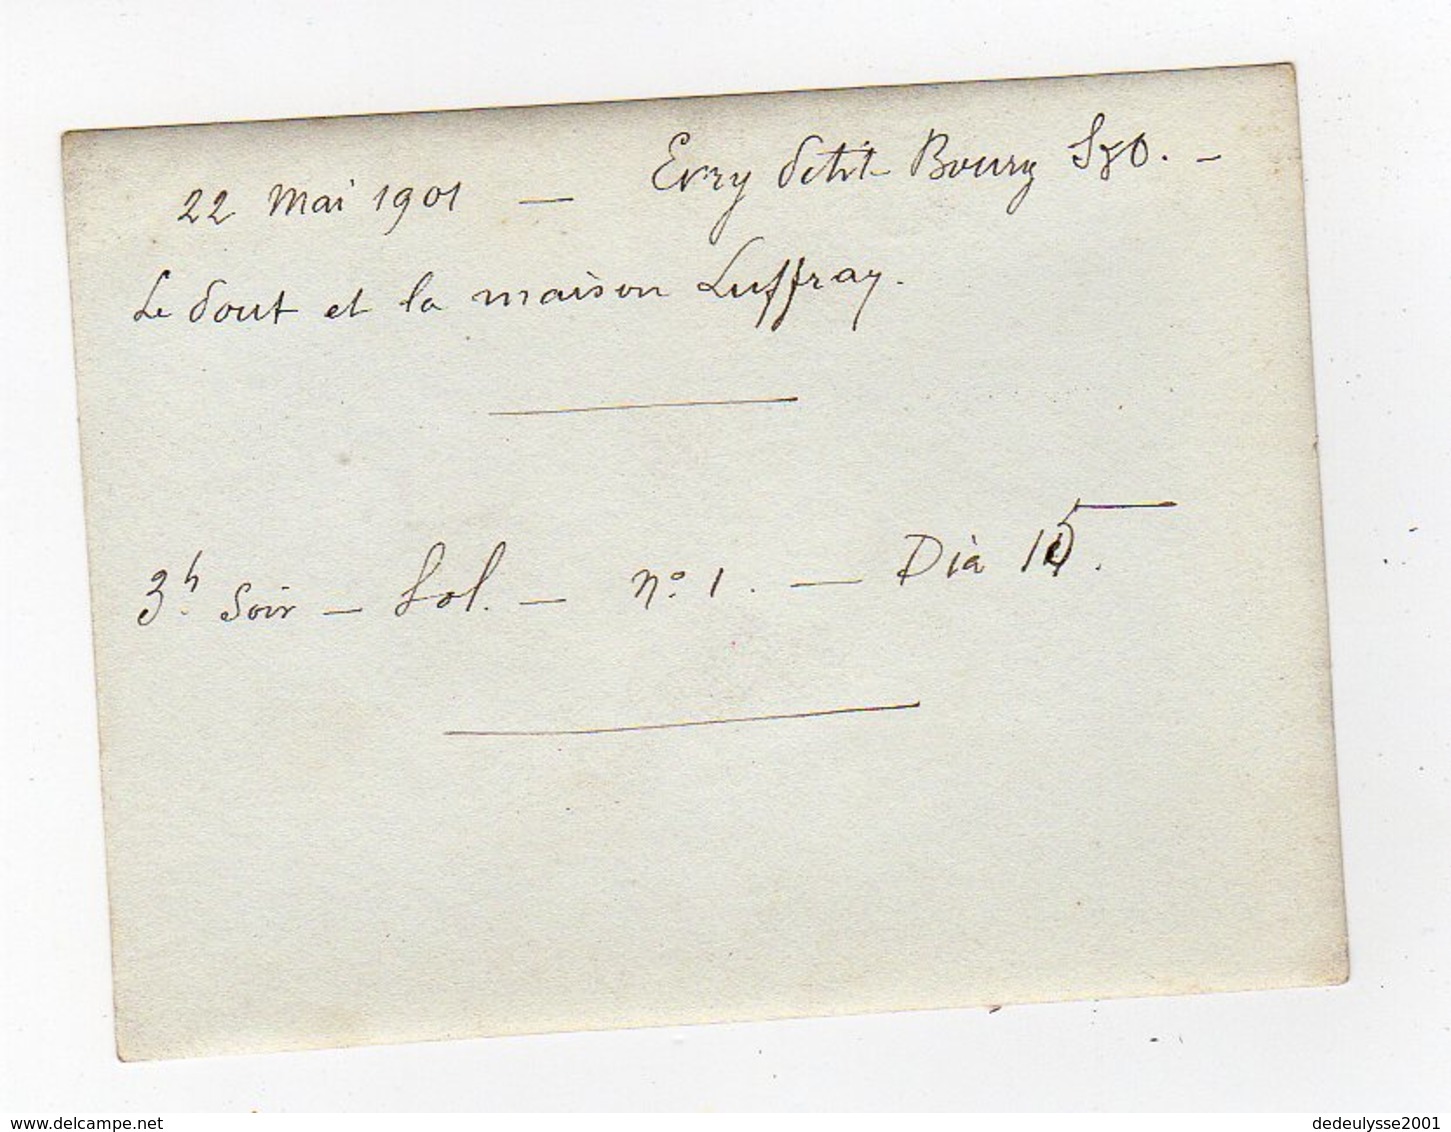 22 Mai 1901 — Evry Petit Bourg S&O. —
Le Pont et la maison Luffray.
3h. Soir — Sol. — No. 1. — Dia 15.
delcampe.net
dedeulysse2001